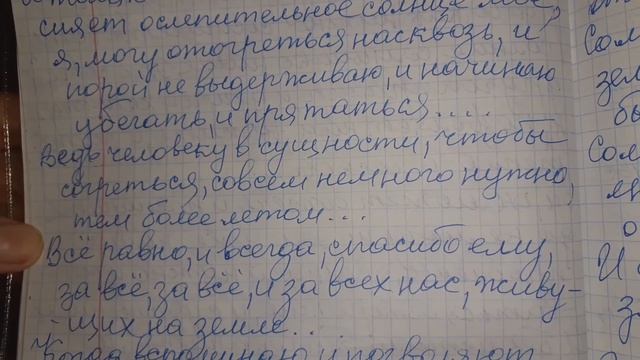 сияет ослепительное солнце моё,
я, могу отогреться насквозь, и
порой не выдерживаю, и начинаю
убегать, и прятаться....
Ведь человеку в сущности, чтобы
согреться, совсем немного нужно,
тем более летом...
Всё равно, и всегда, спасибо ему,
за всё, за всё, и за всех нас, живу-
щих на земле...
Когда вспоминаю и позволяют
Сол
зем
бы
Сол
о
И
з